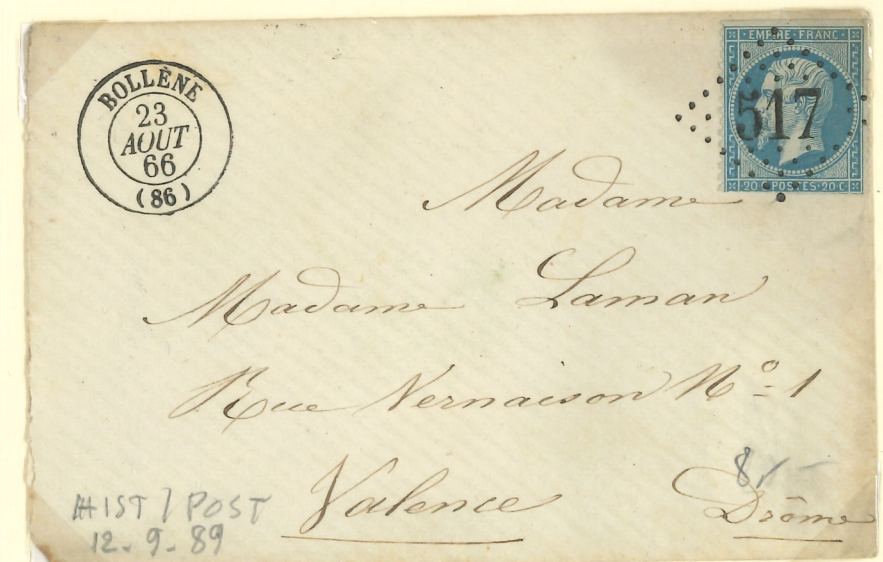 BOLLÈNE
23
AOUT
66
(86)
EMPIRE · FRANC ·
517
20 · POSTES · 20 C ·
Madame
Madame Laman
Rue Vernaison Nº 1
Valence Drôme
8,-
HIST / POST
12-9-89